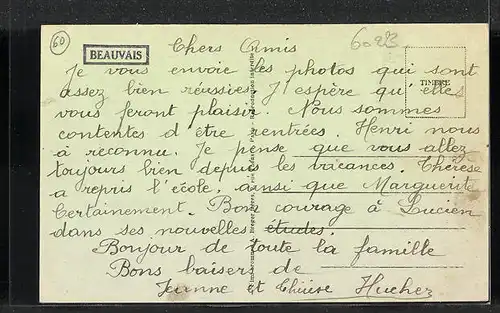 60
BEAUVAIS
6023
TIMBRE
Chers Amis
Je vous envoie les photos qui sont
assez bien réussies. J'espère qu'elles
vous feront plaisir. Nous sommes
contentes d'être rentrées. Henri nous
à reconnu. Je pense que vous allez
toujours bien depuis les vacances. Thérèse
a repris l'école, ainsi que Marguerite
Certainement. Bon courage à Lucien
dans ses nouvelles études.
Bonjour de toute la famille
Bons baisers de
Jeanne et Thérèse Huchez